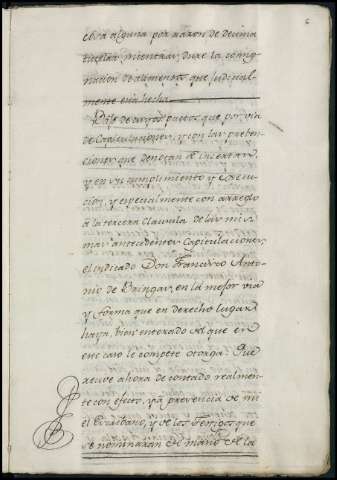 6
cosa alguna por razon de decima
tutelar, mientras dure la consig-
nacion de alimentos que judicial-
mente está hecha
Baxo de cuyos pactos que por via
de Capitulaciones, y con las preben-
ciones que dexan de insertar,
y en su cumplimiento y execu-
cion, y especialmente con arreglo
a la tercera Clausula de las mis-
mas antecedentes Capitulaciones,
el indicado Don Francisco Anto-
nio de Bringas, en la mejor via
y forma que en derecho lugar
haya, bien enterado del que en
este caso le compete otorga: Que
recive ahora de contado, realmen-
te con efecto, y á presencia de mi
el Escribano, y de los Testigos que
se nominarán de mano de la